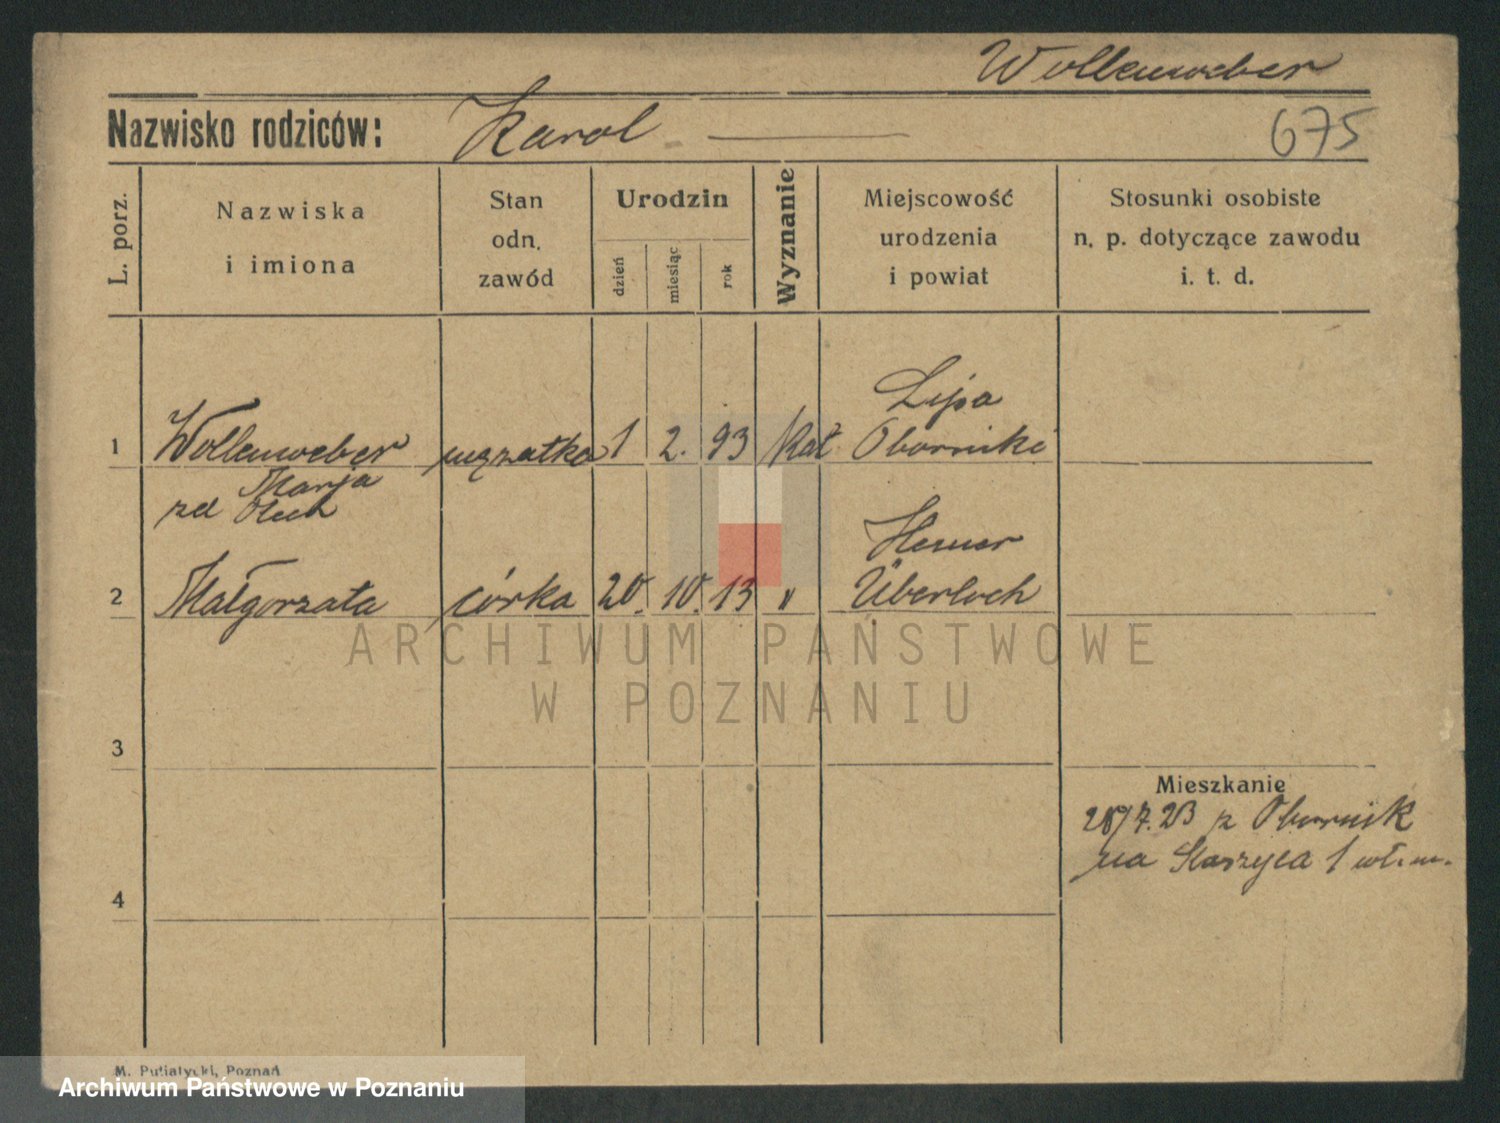 Wollenweber
Nazwisko rodziców: Karol
675
L. porz.
Nazwiska
i imiona
Stan
odn.
zawód
Urodzin
dzień
miesiąc
rok
Wyznanie
Miejscowość
urodzenia
i powiat
Stosunki osobiste
n. p. dotyczące zawodu
i. t. d.
Lipa
1 Wollenweber mężatka 1 2. 93 Kat Oborniki
Marja
zd Olech
Herner
2 Małgorzata córka 20. 10. 13 " Überloch
ARCHIWUM PAŃSTWOWE
W POZNANIU
3
Mieszkanie
28/7.23 z Obornik
na Staszyca 1 wł.m.
4
M. Putiatycki, Poznań
Archiwum Państwowe w Poznaniu